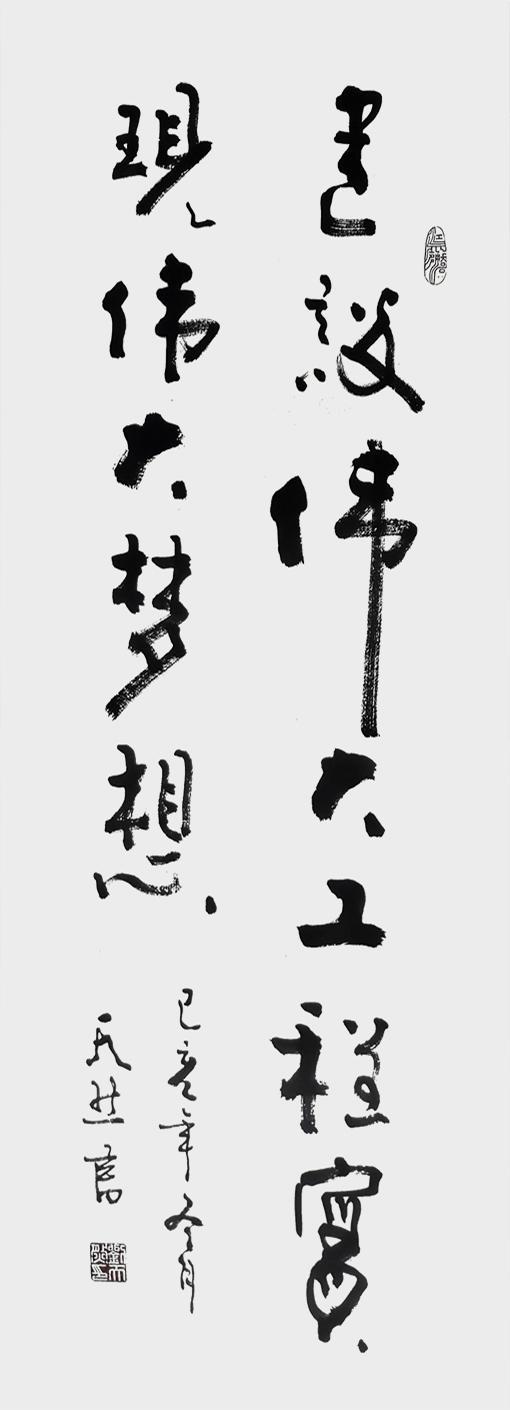 建設伟大工程實
現伟大夢想
己亥年冬月